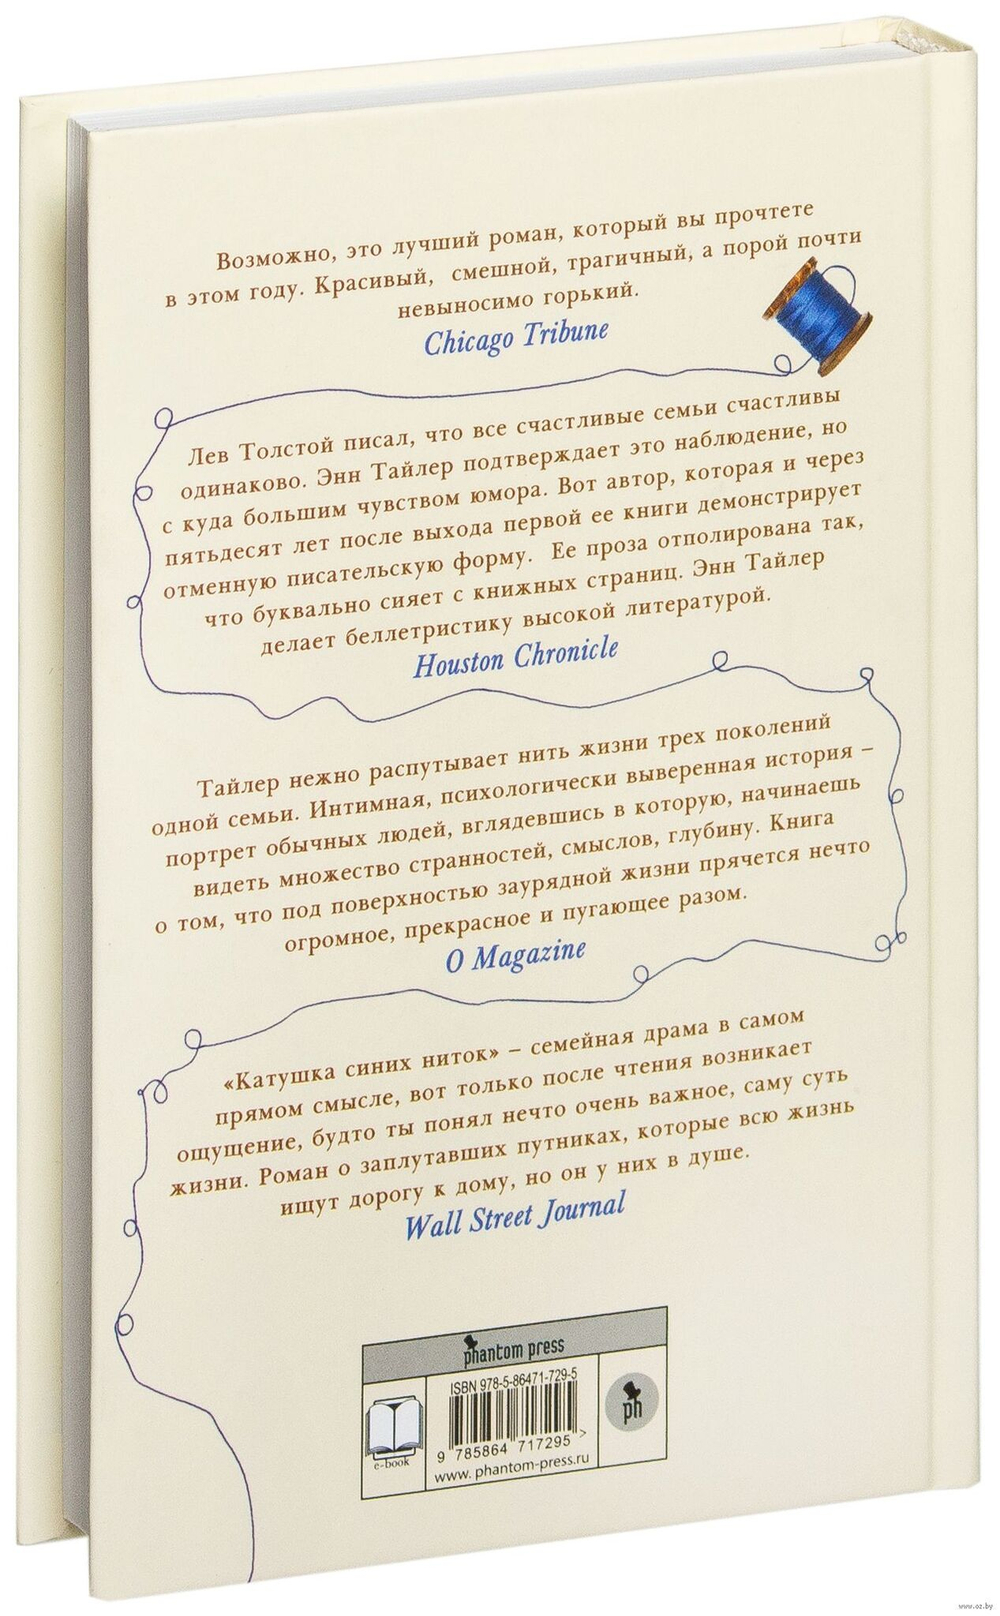 Возможно, это лучший роман, который вы прочтете
в этом году. Красивый, смешной, трагичный, а порой почти
невыносимо горький.
Chicago Tribune
Лев Толстой писал, что все счастливые семьи счастливы
одинаково. Энн Тайлер подтверждает это наблюдение, но
с куда большим чувством юмора. Вот автор, которая и через
пятьдесят лет после выхода первой ее книги демонстрирует
отменную писательскую форму. Ее проза отполирована так,
что буквально сияет с книжных страниц. Энн Тайлер
делает беллетристику высокой литературой.
Houston Chronicle
Тайлер нежно распутывает нить жизни трех поколений
одной семьи. Интимная, психологически выверенная история –
портрет обычных людей, вглядевшись в которую, начинаешь
видеть множество странностей, смыслов, глубину. Книга
о том, что под поверхностью заурядной жизни прячется нечто
огромное, прекрасное и пугающее разом.
O Magazine
«Катушка синих ниток» – семейная драма в самом
прямом смысле, вот только после чтения возникает
ощущение, будто ты понял нечто очень важное, саму суть
жизни. Роман о заплутавших путниках, которые всю жизнь
ищут дорогу к дому, но он у них в душе.
Wall Street Journal
phantom press
ISBN 978-5-86471-729-5
9 785864 717295 >
e-book
ph
www. phantom-press.ru
www.oz.by